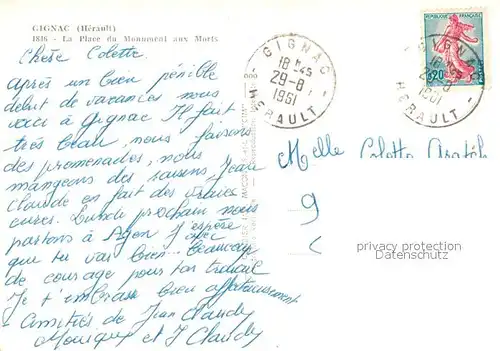 GIGNAC (Hérault)
1816 - La Place du Monument aux Morts
Chère Colette
Après un bien pénible
début de vacances nous
voici à Gignac Il fait
très beau, nous faisons
des promenades, nous
mangeons des raisins, Jean
Claude en fait des vraies
cures. Lundi prochain nous
partons à Agen J'espère
que tu vas bien. avec beaucoup
de courage pour ton travail
Je t'embrasse bien affectueusement
Amitiés de Jean Claude
Monique et J Claude
GIGNAC
18H45
29-8
1961
HERAULT
REPUBLIQUE FRANÇAISE
0,20
GIGNAC
18H45
29-8
1961
HERAULT
Melle Colette
9
privacy protection
Datenschutz